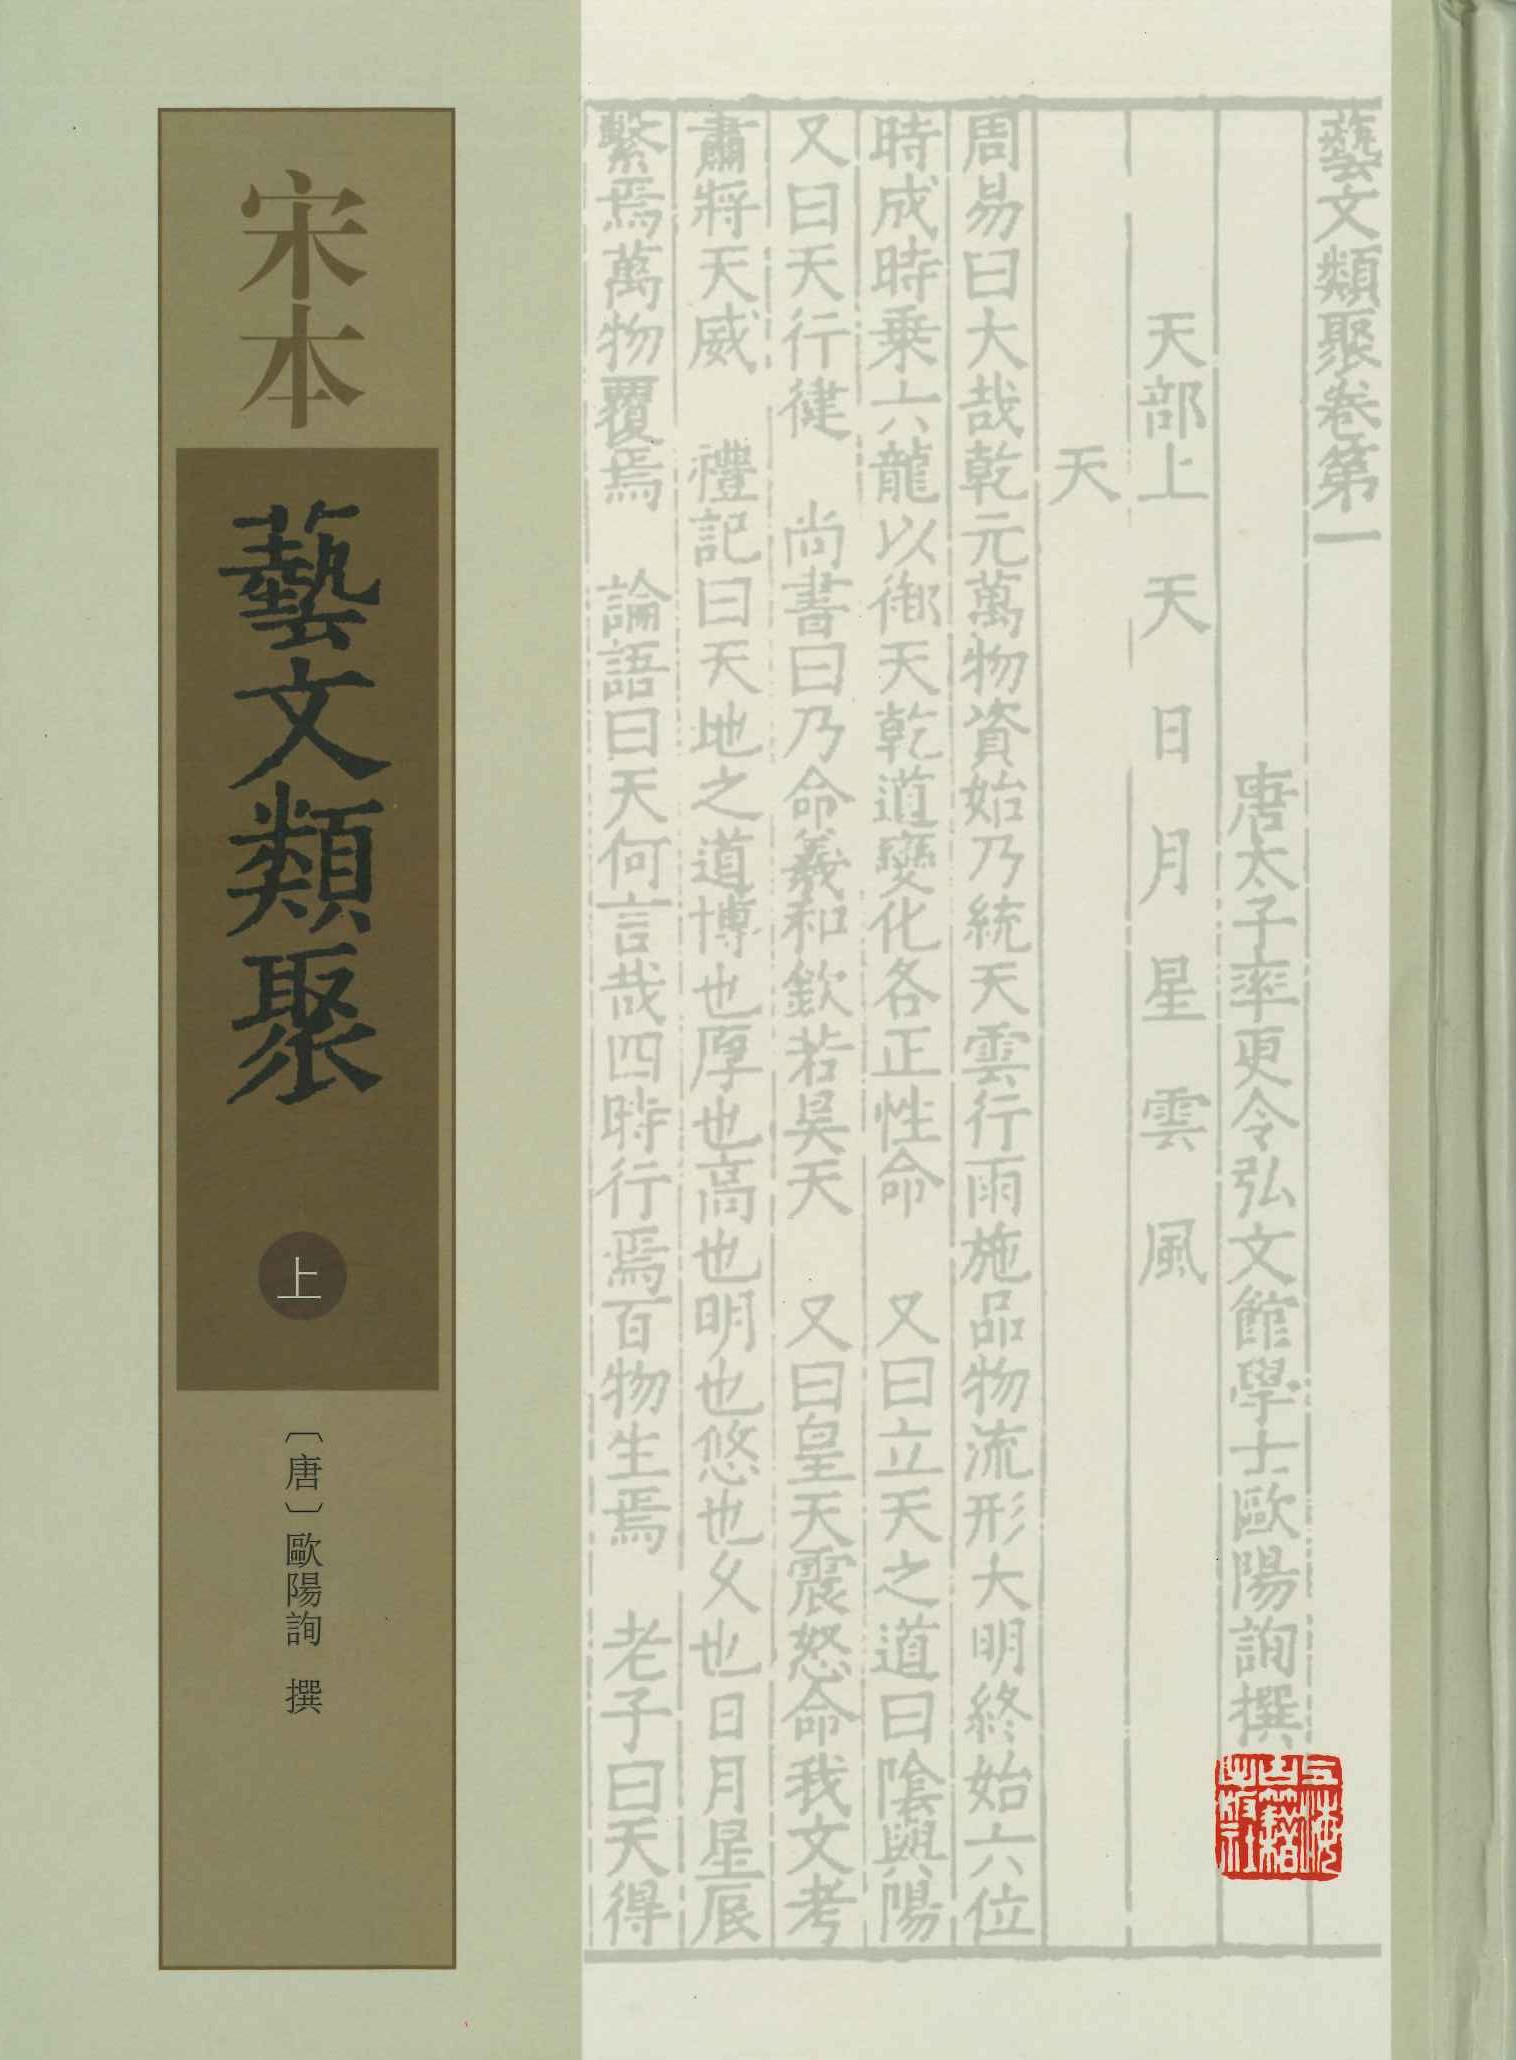 宋本
藝文類聚
上
〔唐〕歐陽詢 撰
藝文類聚卷第一
唐太子率更令弘文館學士歐陽詢撰
天部上 天 日 月 星 雲 風
天
周易曰大哉乾元萬物資始乃統天雲行雨施品物流形大明終始六位
時成時乘六龍以御天乾道變化各正性命 又曰立天之道曰陰與陽
又曰天行健 尚書曰乃命羲和欽若昊天 又曰皇天震怒命我文考
肅將天威 禮記曰天地之道博也厚也高也明也悠也久也日月星辰
繫焉萬物覆焉 論語曰天何言哉四時行焉百物生焉 老子曰天得
上海古籍出版社